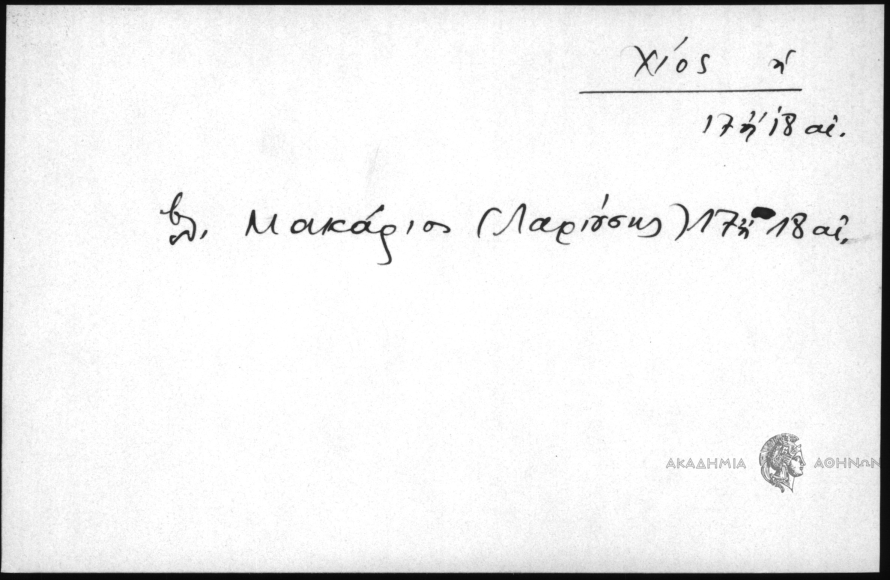 Χίος ἡ
17 ἢ 18 αἰ.
βλ. Μακάριος (Λαρίσσης) 17 ἢ 18 αἰ.
ΑΚΑΔΗΜΙΑ ΑΘΗΝΩΝ